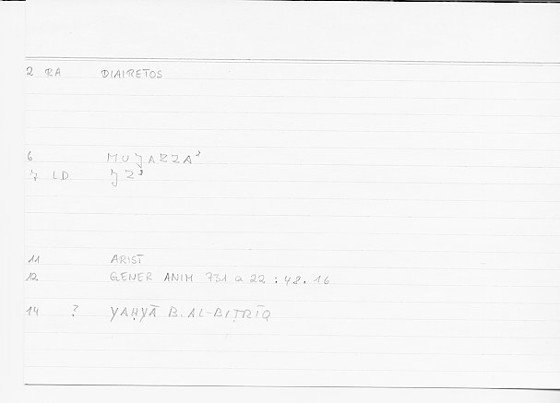 2 RA DIAIRETOS
6 MUǦAZZAʾ
7 LD ǦZʾ
11 ARIST
12 GENER ANIM 731 a 22 : 48.16
14 ? YAḤYĀ B. AL-BIṬRĪQ